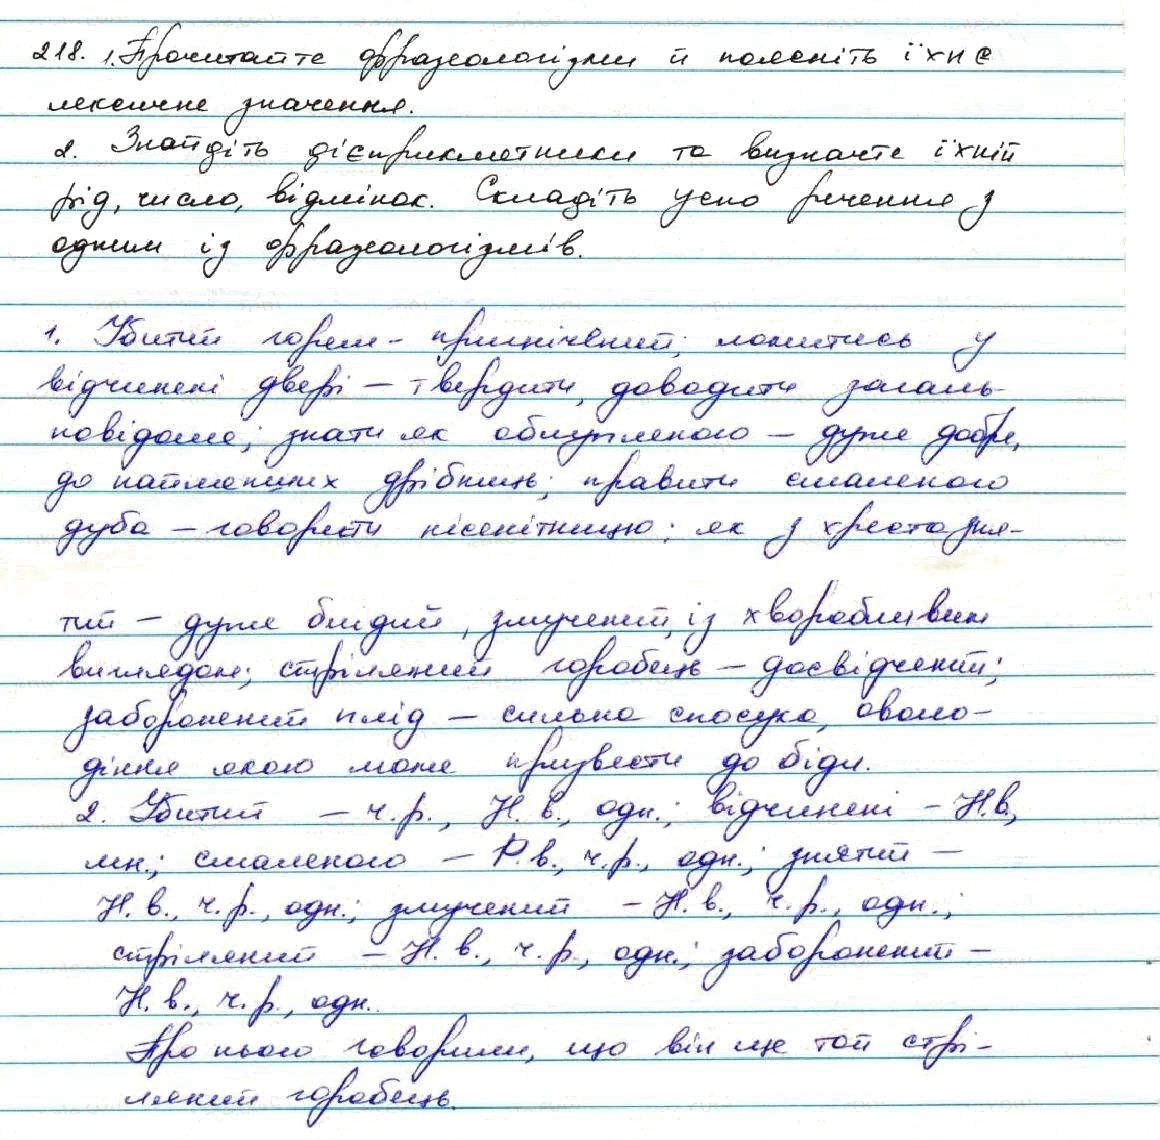 218. 1. Прочитайте фразеологізми й поясніть їхнє
лексичне значення.
2. Знайдіть дієприкметники та визначте їхній
рід, число, відмінок. Складіть усно речення з
одним із фразеологізмів.
1. Убитий горем - пригнічений; ломитись у
відчинені двері - твердити, доводити загаль-
новідоме; знати як облупленого - дуже добре,
до найменших дрібниць; правити смаленого
дуба - говорити нісенітницю; як з хреста зня-
тий - дуже блідий, змучений, із хворобливим
виглядом; стріляний горобець - досвідчений;
заборонений плід - сильна спокуса, оволо-
діння якою може призвести до біди.
2. Убитий - ч.р., Н.в., одн.; відчинені - Н.в.,
мн.; смаленого - Р.в., ч.р., одн.; знятий -
Н.в., ч.р., одн.; змучений - Н.в., ч.р., одн.;
стріляний - Н.в., ч.р., одн.; заборонений -
Н.в., ч.р., одн.
Про нього говорили, що він ще той стрі-
ляний горобець.